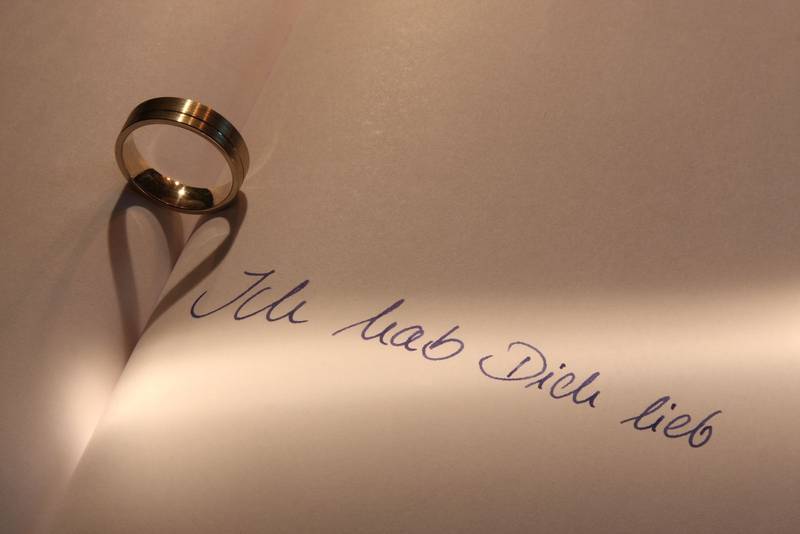 Ich hab Dich lieb